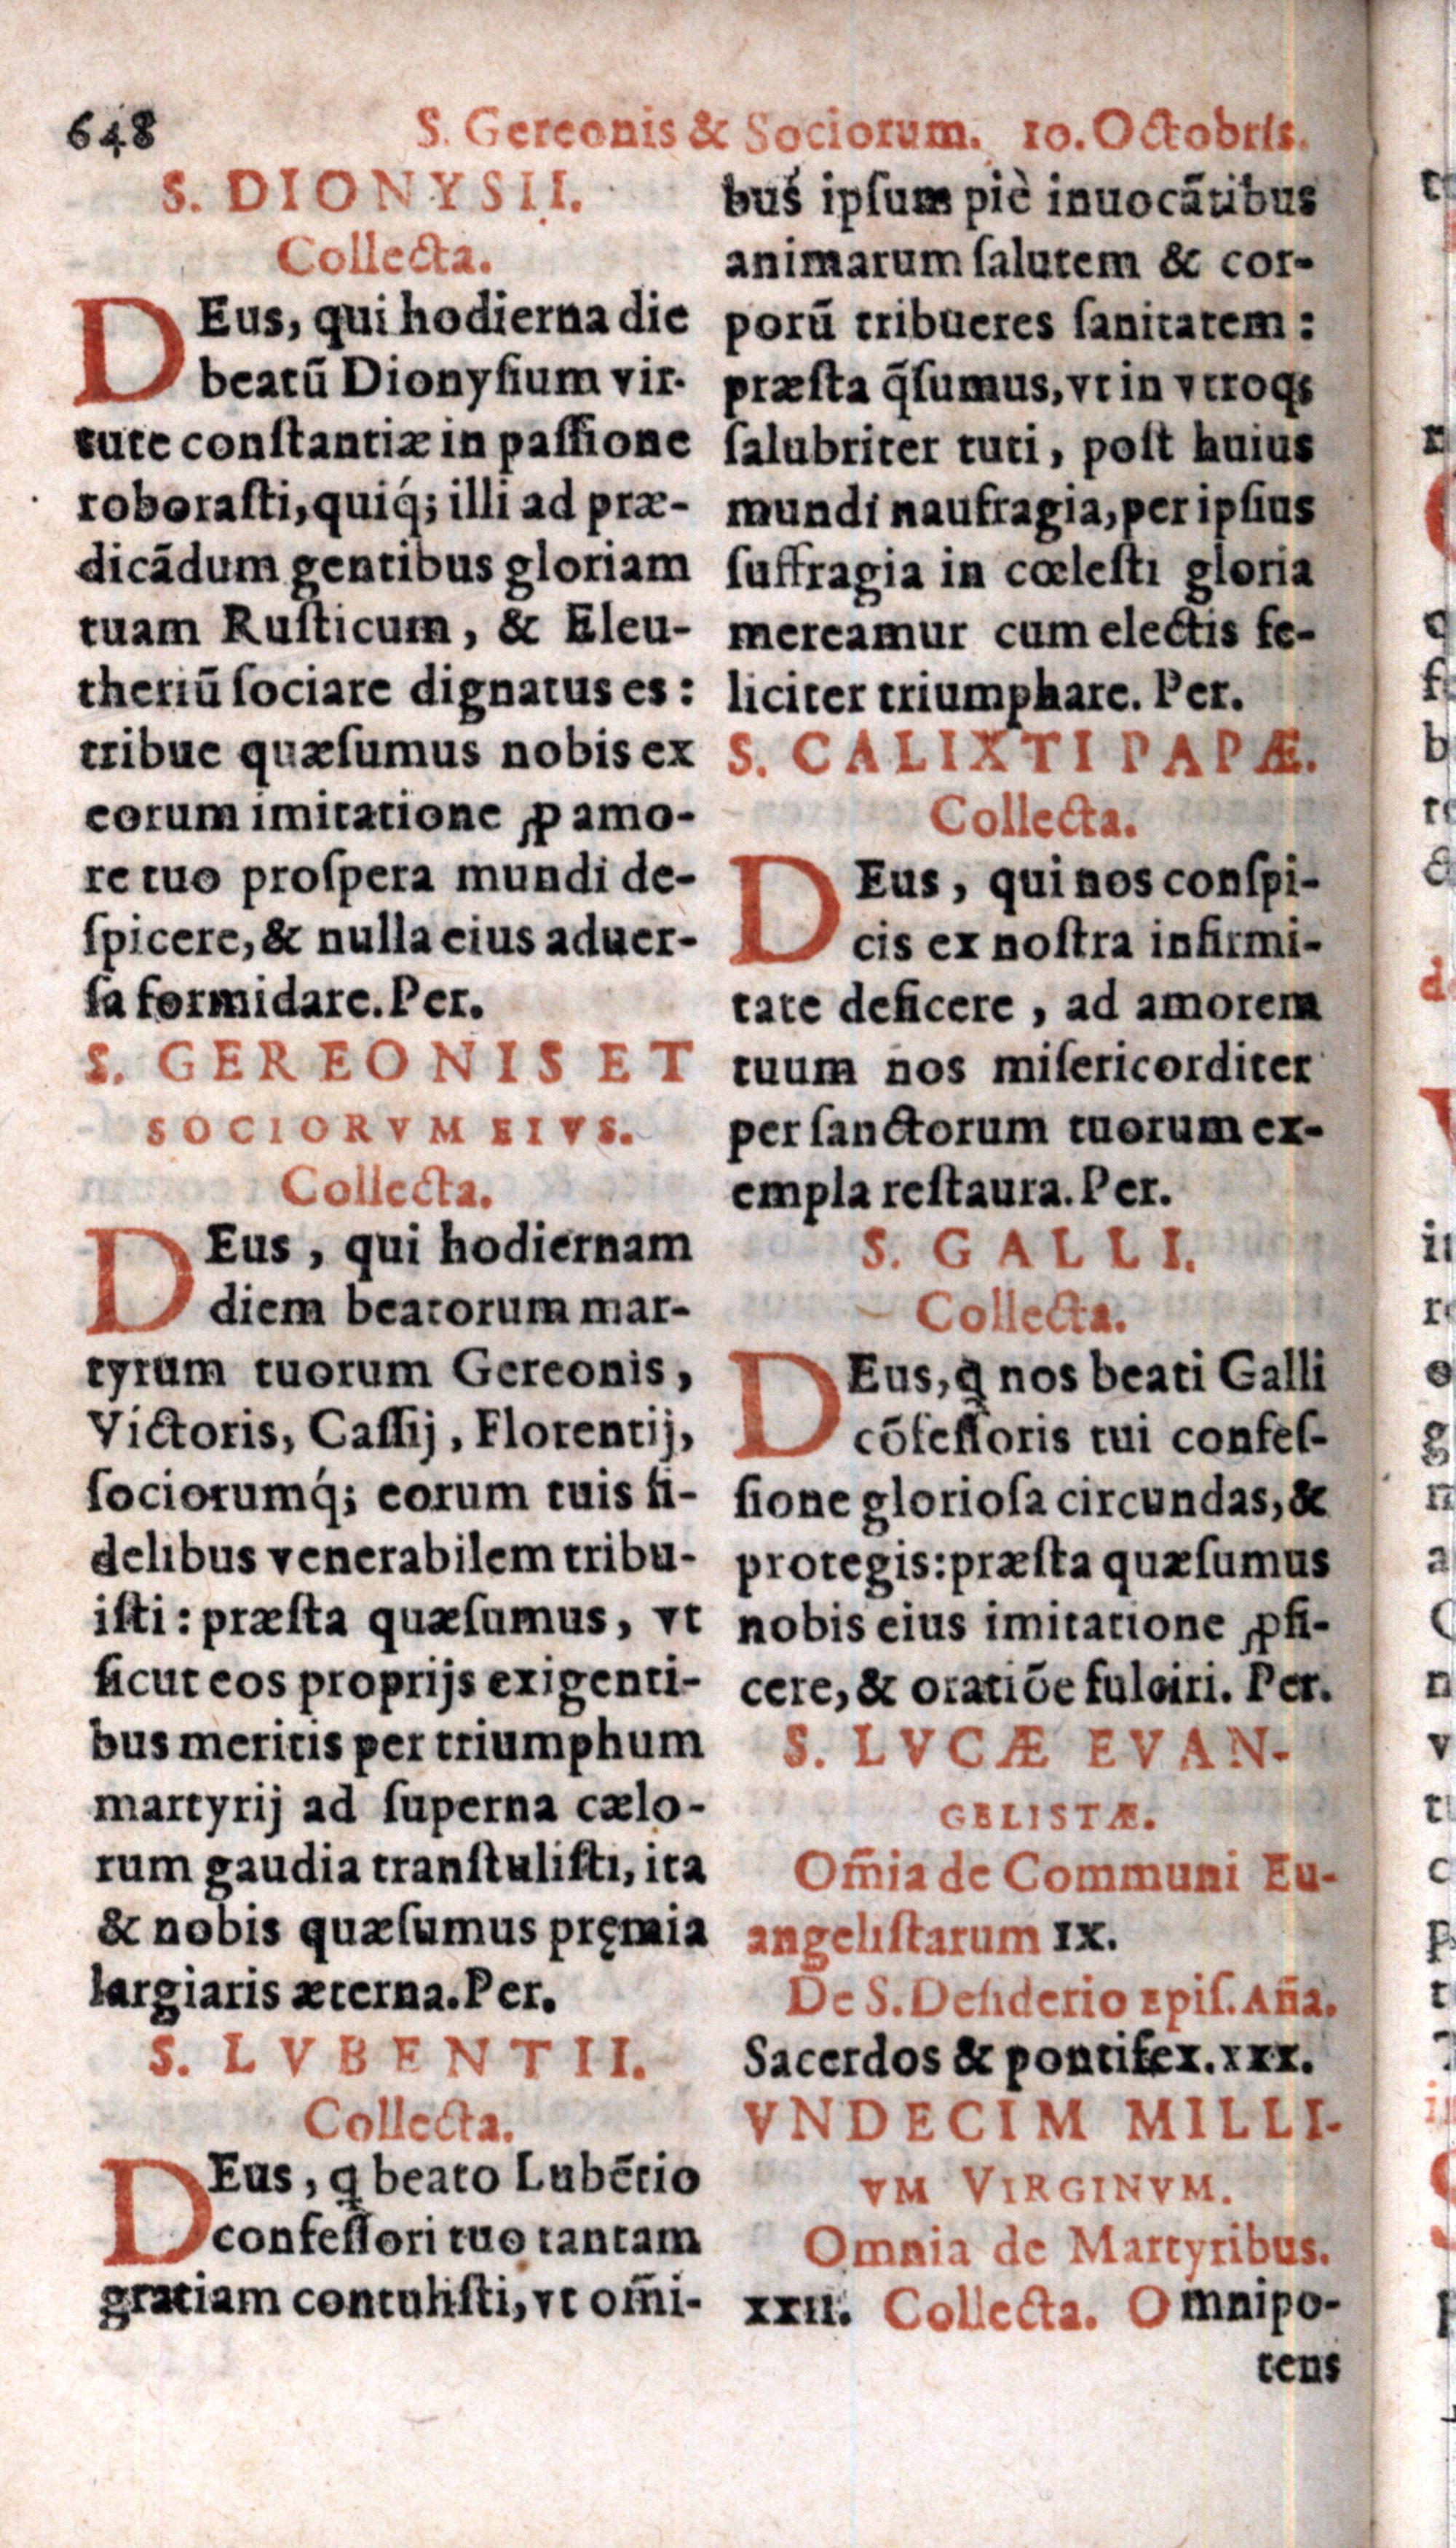 648 S. Gereonis & Sociorum. 10. Octobris.
S. DIONYSII.
Collecta.
DEus, qui hodierna die
beatũ Dionyſium vir-
tute conſtantiæ in paſſione
roboraſti, quiq́; illi ad præ-
dicãdum gentibus gloriam
tuam Ruſticum, & Eleu-
theriũ ſociare dignatus es:
tribue quæſumus nobis ex
eorum imitatione ꝓ amo-
re tuo proſpera mundi de-
ſpicere, & nulla eius aduer-
ſa formidare. Per.
S. GEREONIS ET
SOCIORVM EIVS.
Collecta.
DEus, qui hodiernam
diem beatorum mar-
tyrum tuorum Gereonis,
Victoris, Caſſij, Florentij,
ſociorumq́; eorum tuis fi-
delibus venerabilem tribu-
iſti: præſta quæſumus, vt
ſicut eos proprijs exigenti-
bus meritis per triumphum
martyrij ad ſuperna cælo-
rum gaudia tranſtuliſti, ita
& nobis quæſumus pręmia
largiaris æterna. Per.
S. LVBENTII.
Collecta.
DEus, ꝗ beato Lubẽtio
confeſſori tuo tantam
gratiam contuliſti, vt om̃i-
bus ipſum piè inuocãtibus
animarum ſalutem & cor-
porũ tribueres ſanitatem:
præſta q̃ſumus, vt in vtroqꝫ
ſalubriter tuti, poſt huius
mundi naufragia, per ipſius
ſuffragia in cœleſti gloria
mereamur cum electis fe-
liciter triumphare. Per.
S. CALIXTI PAPÆ.
Collecta.
DEus, qui nos conſpi-
cis ex noſtra infirmi-
tate deficere, ad amorem
tuum nos miſericorditer
per ſanctorum tuorum ex-
empla reſtaura. Per.
S. GALLI.
Collecta.
DEus, ꝗ nos beati Galli
cõfeſſoris tui confeſ-
ſione glorioſa circundas, &
protegis: præſta quæſumus
nobis eius imitatione ꝓfi-
cere, & oratiõe fulciri. Per.
S. LVCÆ EVAN-
GELISTÆ.
Om̃ia de Communi Eu-
angeliſtarum IX.
De S. Deſiderio Epiſ. Añа.
Sacerdos & pontifex. xxx.
VNDECIM MILLI-
VM VIRGINVM.
Omnia de Martyribus.
XXII. Collecta. Omnipo-
tens